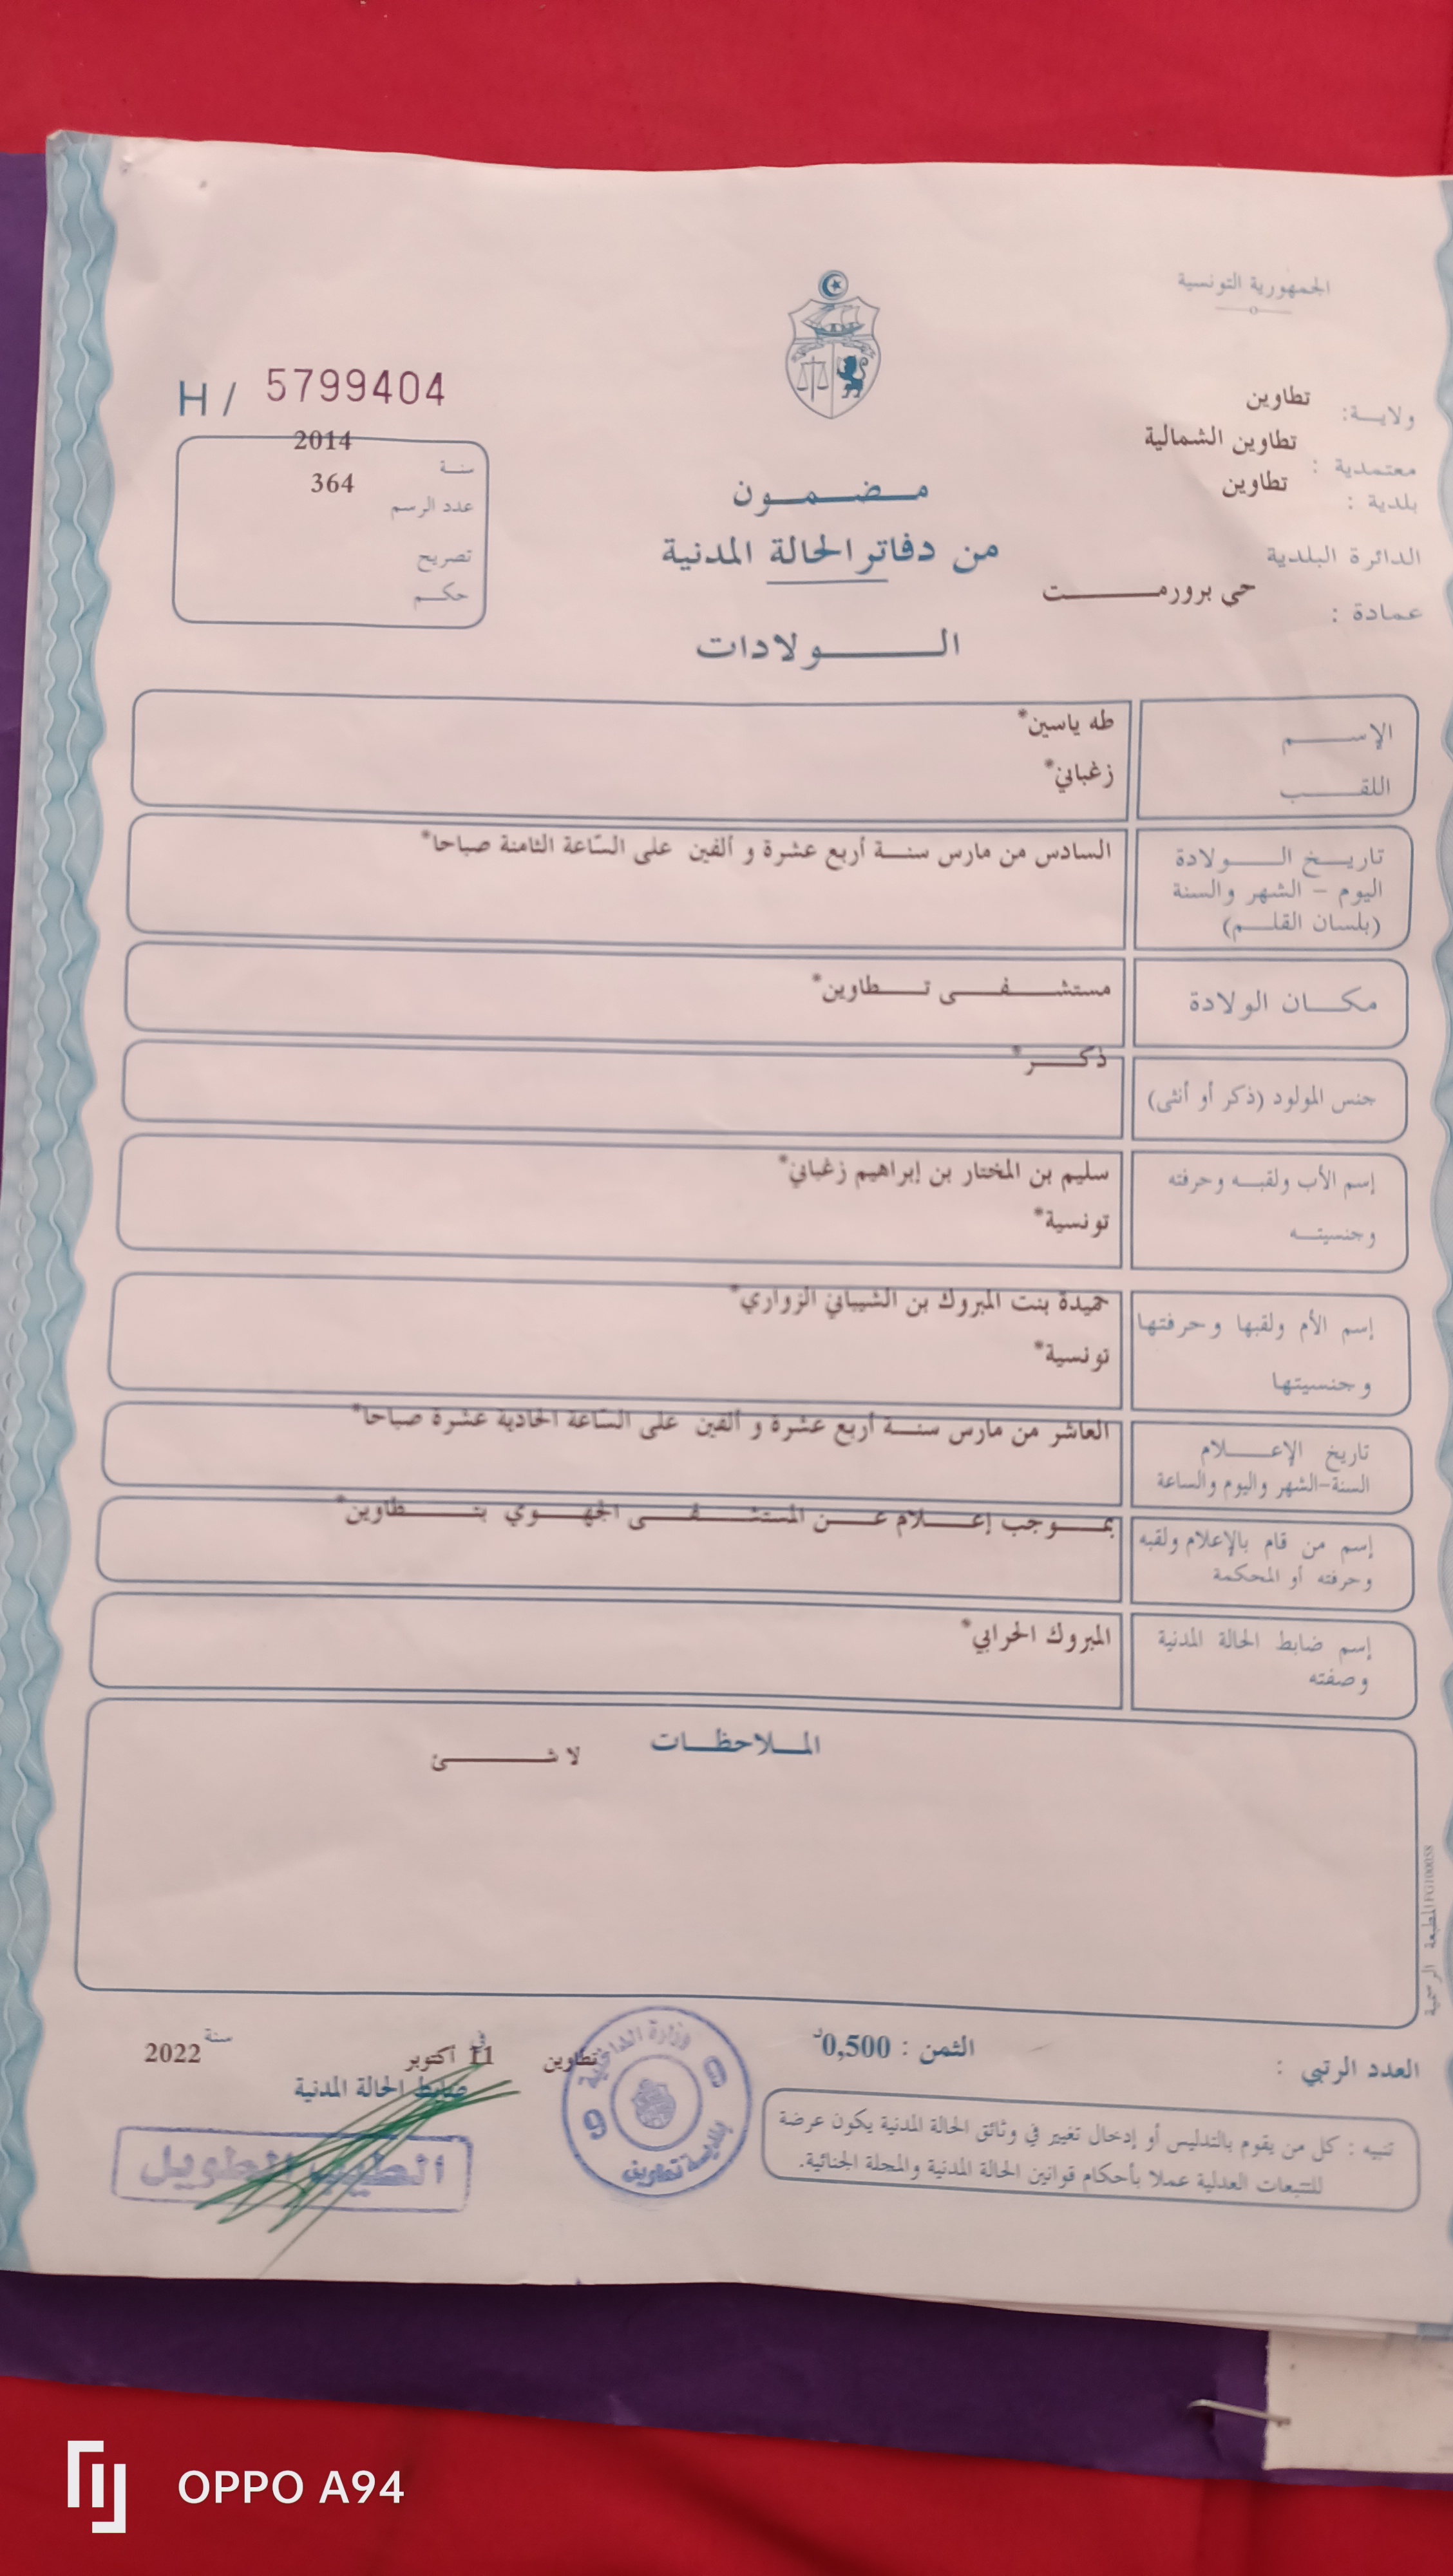 الجمهورية التونسية
ولايـــة: تطاوين
معتمدية : تطاوين الشمالية
بلدية : تطاوين
الدائرة البلدية
عمادة : حي برورمـــــــت
H / 5799404
سنة 2014
عدد الرسم 364
تصريح
حكـــم
مـــضـــمـــون
من دفاتر الحالة المدنية
الـــــــولادات
الإســـــم طه ياسين*
اللقـــــب زغباني*
تاريـــخ الـــــولادة السادس من مارس سنـــة أربع عشرة و ألفين على السّاعة الثامنة صباحا*
اليوم – الشهر والسنة
(بلسان القلـــم)
مكـــان الولادة مستشـــفـــى تـــطاوين*
جنس المولود (ذكر أو أنثى) ذكـــر*
إسم الأب ولقبـــه وحرفته سليم بن المختار بن إبراهيم زغباني*
وجنسيتـــه تونسية*
إسم الأم ولقبها وحرفتها حميدة بنت المبروك بن الشيباني الزواري*
وجنسيتها تونسية*
تاريخ الإعـــــلام العاشر من مارس سنـــة أربع عشرة و ألفين على السّاعة الحادية عشرة صباحا*
السنة-الشهر واليوم والساعة
إسم من قام بالإعلام ولقبه بمـــوجب إعـــلام عـــن المستشـــفـــى الجهـــوي بتـــطاوين*
وحرفته أو المحكمة
إسم ضابط الحالة المدنية المبروك الحرابي*
وصفته
المـــلاحظـــات
لا شـــــئ
المطبعة الرسمية
العدد الرتبي :
الثمن : 0,500د
تطاوين في 11 أكتوبر سنة 2022
ضابط الحالة المدنية
الطيب الطويل
وزارة الداخلية
بلدية تطاوين
9 9
تنبيه : كل من يقوم بالتدليس أو إدخال تغيير في وثائق الحالة المدنية يكون عرضة
للتتبعات العدلية عملا بأحكام قوانين الحالة المدنية والمجلة الجنائية.
OPPO A94